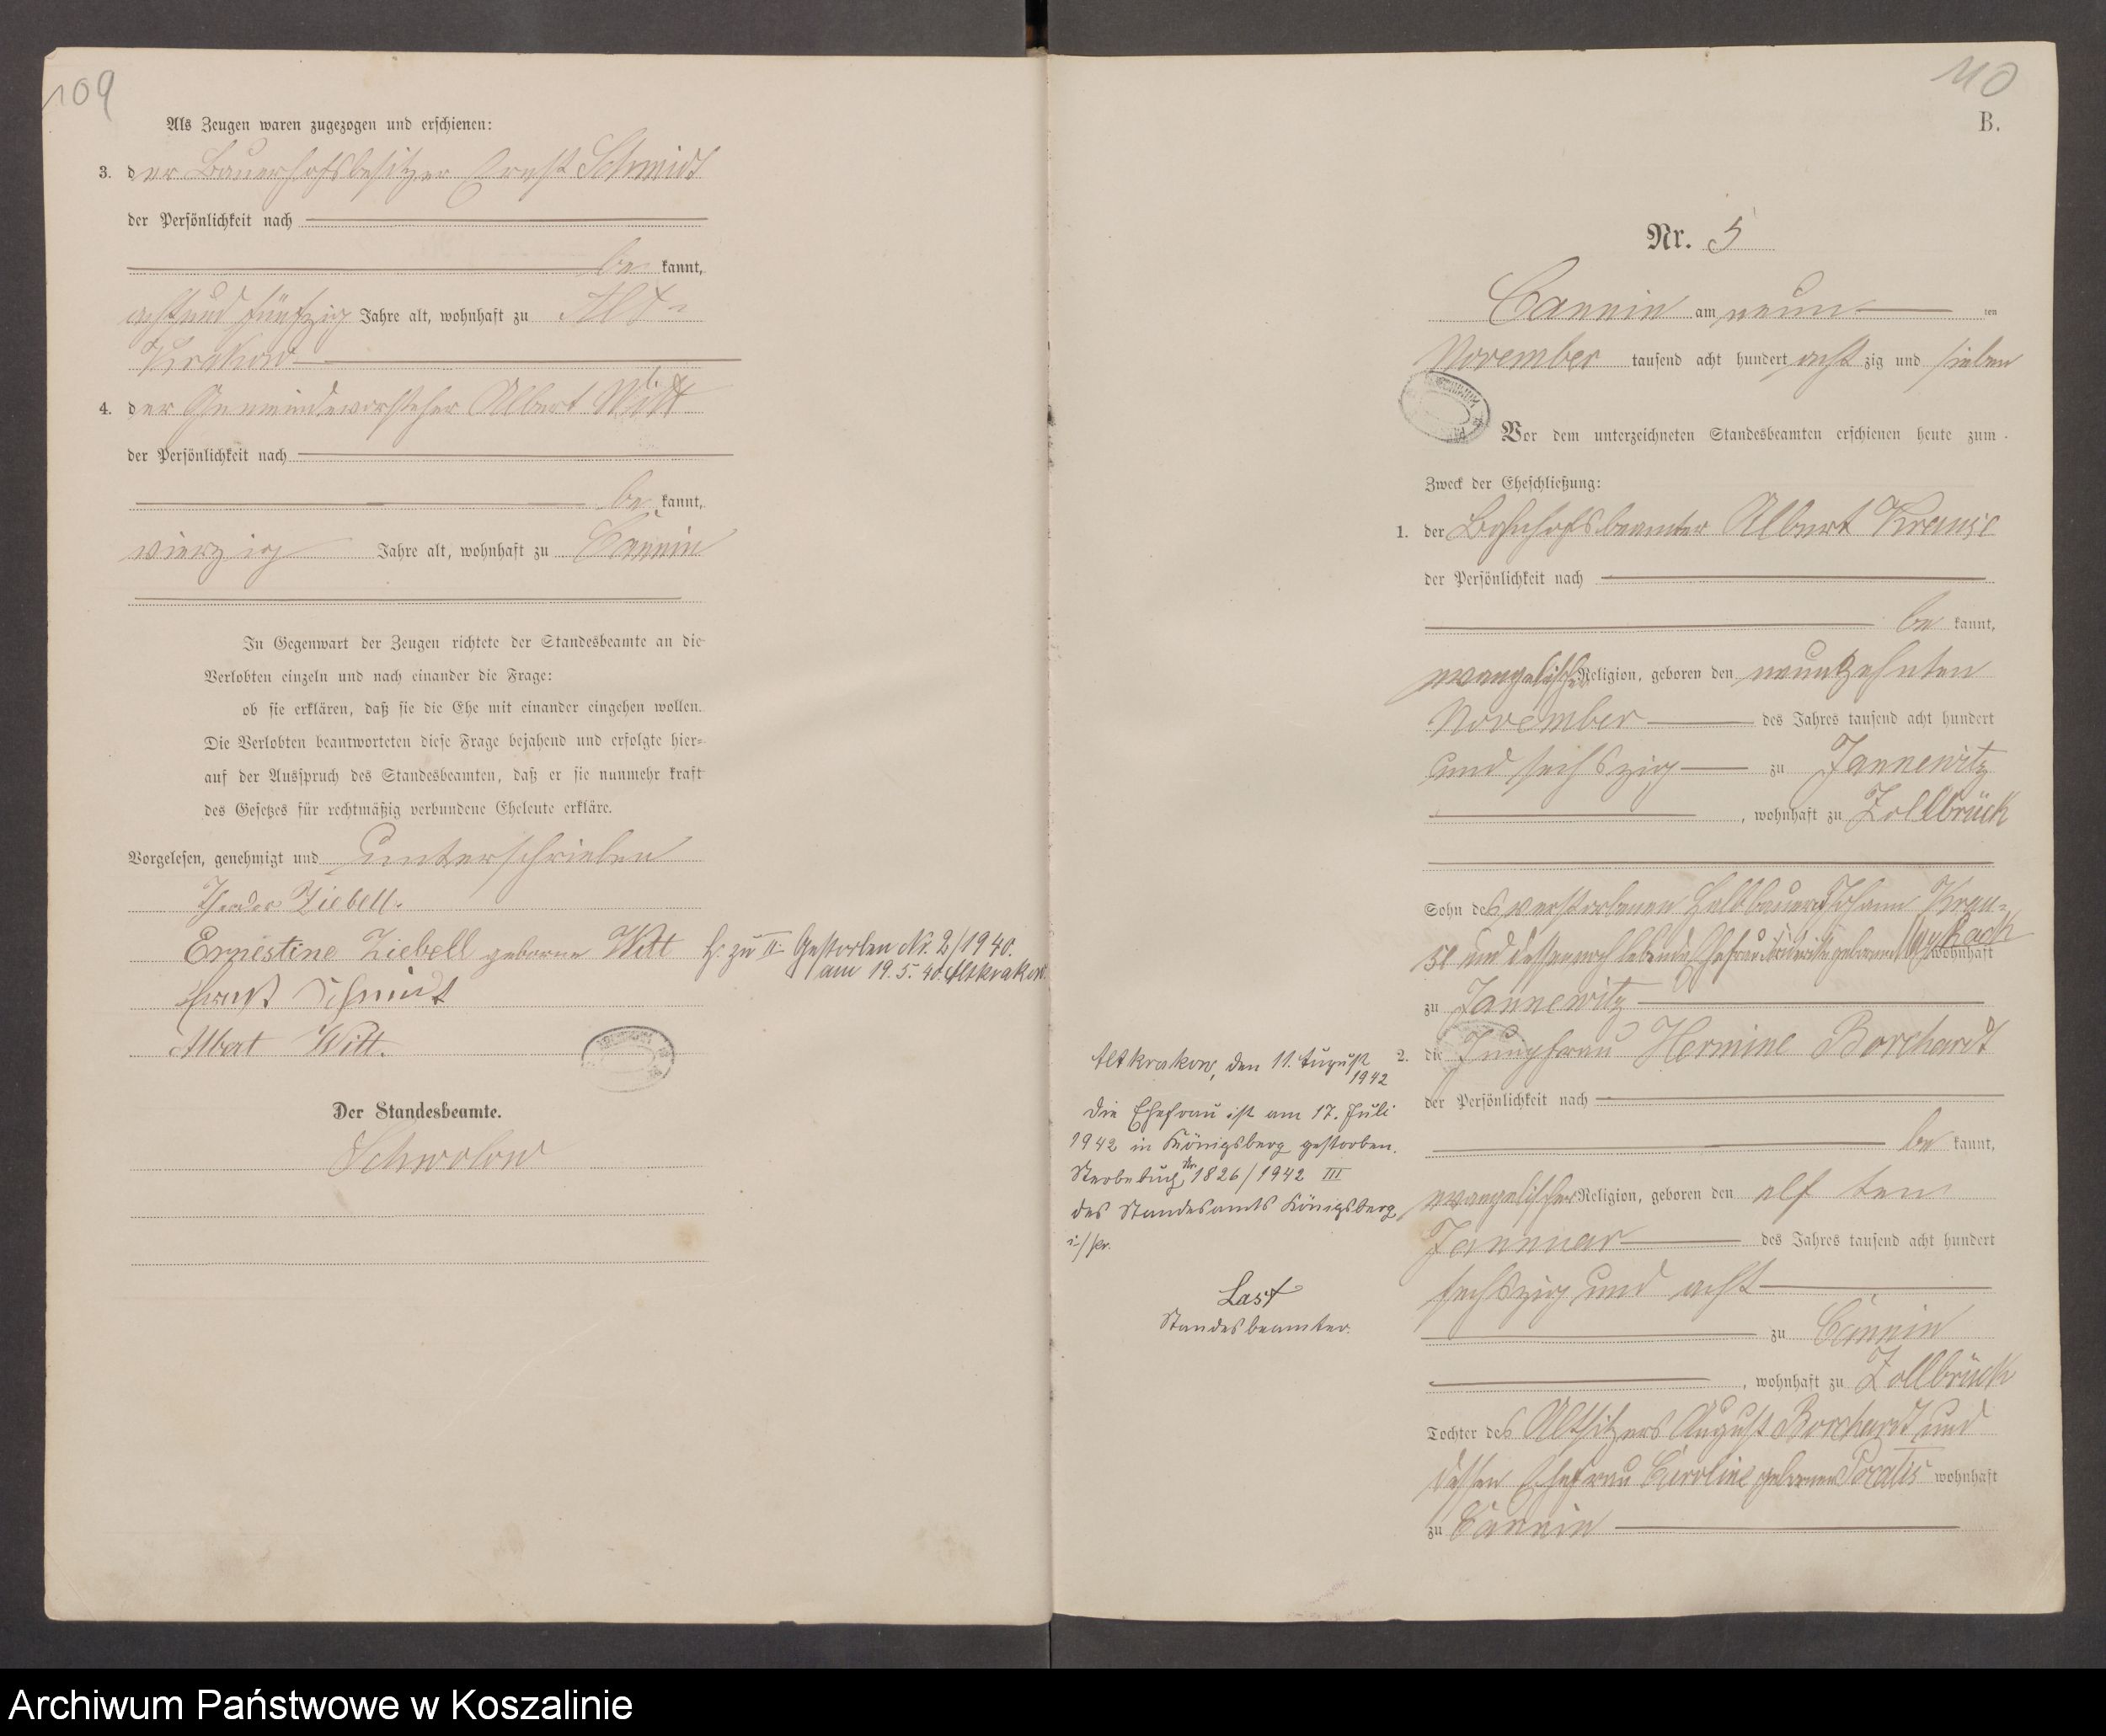 109
Als Zeugen waren zugezogen und erschienen:
3. der Bauerhofsbesitzer Ernst Schmidt
der Persönlichkeit nach
be kannt,
acht und fünfzig Jahre alt, wohnhaft zu Alt-
Krakow
4. der Gemeindevorsteher Albert Witt
der Persönlichkeit nach
be kannt,
vierzig Jahre alt, wohnhaft zu Cannin
In Gegenwart der Zeugen richtete der Standesbeamte an die
Verlobten einzeln und nach einander die Frage:
ob sie erklären, daß sie die Ehe mit einander eingehen wollen.
Die Verlobten beantworteten diese Frage bejahend und erfolgte hier-
auf der Ausspruch des Standesbeamten, daß er sie nunmehr kraft
des Gesetzes für rechtmäßig verbundene Eheleute erkläre.
Vorgelesen, genehmigt und unterschrieben
Ziebell.
Ernestine Ziebell geborne Witt
H. zu II: Gestorben Nr. 2/1940.
am 19.5.40. Altkrakow.
Ernst Schmidt
Albert Witt.
Der Standesbeamte.
Schwolow
110
B.
Nr. 5
Cannin am neun ten
November tausend acht hundert acht zig und sieben
Vor dem unterzeichneten Standesbeamten erschienen heute zum
Zweck der Eheschließung:
1. der Bahnhofsbeamter Albert Krause
der Persönlichkeit nach
be kannt,
evangelischer Religion, geboren den neunzehnten
November des Jahres tausend acht hundert
und sechszig zu Jannewitz
, wohnhaft zu Zollbrück
Sohn des verstorbenen Halbbauers Johann Krau-
se und dessen noch lebende Ehefrau geborene wohnhaft
zu Jannewitz
2. die Jungfrau Hermine Borchardt
der Persönlichkeit nach
be kannt,
evangelischer Religion, geboren den elf ten
Januar des Jahres tausend acht hundert
sechszig und acht
zu Cannin
, wohnhaft zu Zollbrück
Tochter des Altsitzers August Borchardt und
dessen Ehefrau Caroline geborene wohnhaft
zu Cannin
Altkrakow, den 11. August
1942
Die Ehefrau ist am 17. Juli
1942 in Königsberg gestorben.
Sterbebuch Nr. 1826/1942 III
des Standesamts Königsberg
i./Pr.
Last
Standesbeamter.
Archiwum Państwowe w Koszalinie